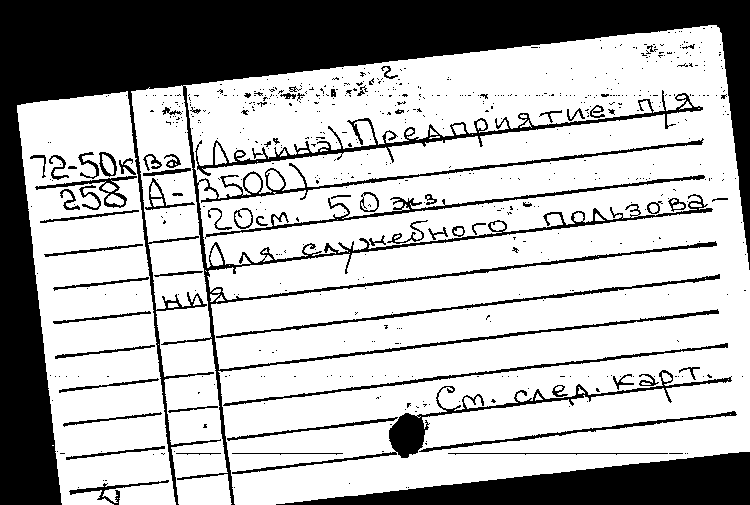 2
72-50к ва (Ленина). Предприятие п/я
258 А-3500).
20см. 50 экз.
Для служебного пользова-
ния.
См. след. карт.